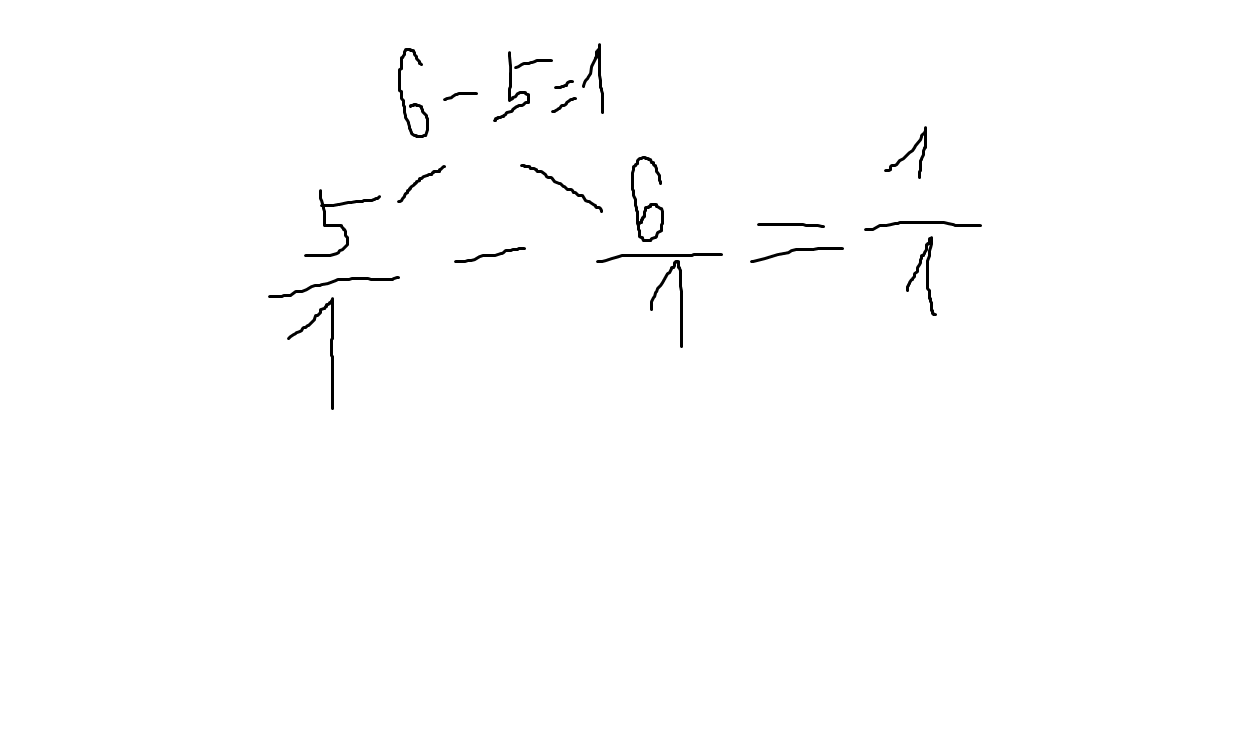 6 - 5 = 1
5/1 - 6/1 = 1/1